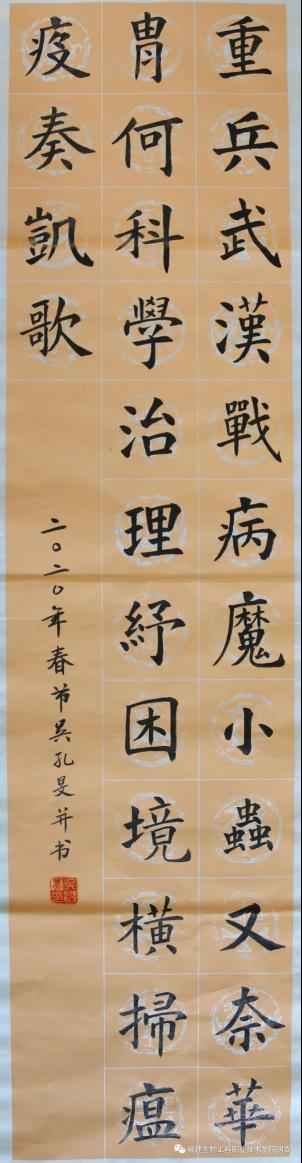 重兵武漢戰病魔小蟲又奈華
胄何科學治理紓困境橫掃瘟
疫奏凱歌
二〇二〇年春节吴孔旻并书
福建生物工程职业技术学院团委